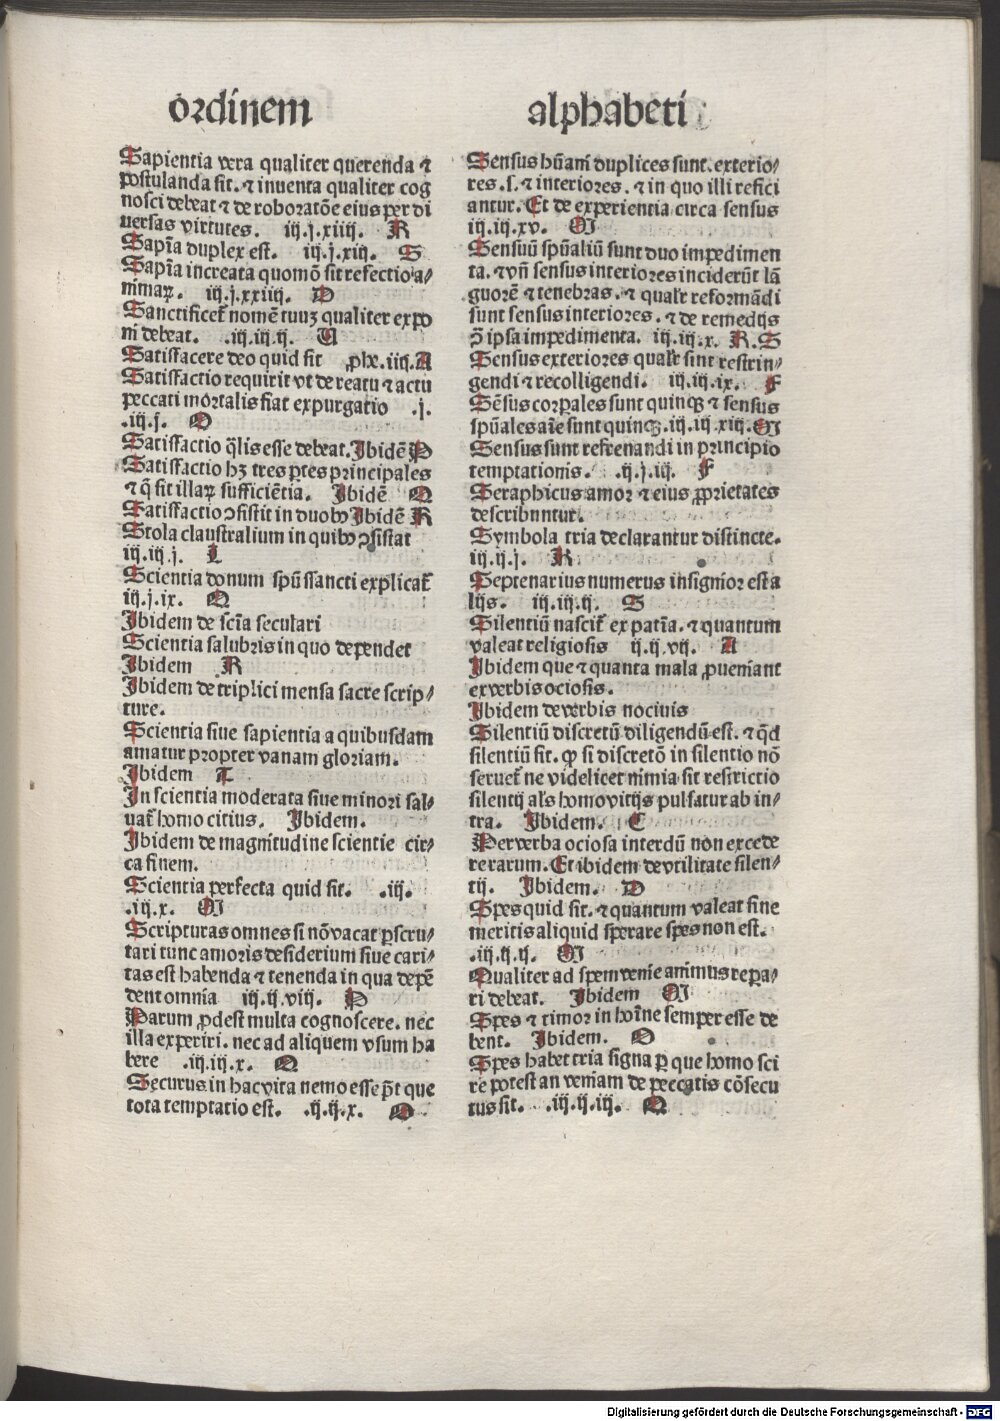 ordinem
Sapientia vera qualiter querenda ⁊
postulanda sit. ⁊ inuenta qualiter cog
nosci debeat ⁊ de roboratōe eius per di
uersas virtutes. iij.j.xiiij. R
Sapīa duplex est. iij.j.xiij. S
Sapīa increata quomō sit refectio a/
nimaꝝ. iij.j.xxiiij. D
Sanctificet̄ nomē tuuꝫ qualiter expo
ni debeat. iij.iij.ij. U
Satisfacere deo quid sit ꝓlx.iiij.A
Satisfactio requirit vt de reatu ⁊ actu
peccati mortalis fiat expurgatio .j.
.iij.j. O
Satisfactio q̄lis esse debeat. Ibidē P
Satisfactio hꝫ tres ꝑtes principales
⁊ q̄ sit illaꝝ sufficiētia. Ibidē Q
Satisfactio ↄsistit in duobꝰ Ibidē R
Stola claustralium in quibꝰ ↄsistat
iij.iij.j. L
Scientia donum spūs sancti explicat̄
iij.j.ix. Q
Ibidem de scīa seculari
Scientia salubris in quo dependet
Ibidem R
Ibidem de triplici mensa sacre scrip/
ture.
Scientia siue sapientia a quibusdam
amatur propter vanam gloriam.
Ibidem T
In scientia moderata siue minori sal/
uat̄ homo citius. Ibidem.
Ibidem de magnitudine scientie cir/
ca finem.
Scientia perfecta quid sit. .iij.
.iij.x. M
Scripturas omnes si nō vacat ꝑscru/
tari tunc amoris desiderium siue cari/
tas est habenda ⁊ tenenda in qua depē
dent omnia iij.ij.viij. P
Parum ꝓdest multa cognoscere. nec
illa experiri. nec ad aliquem vsum ha
bere .iij.iij.x. Q
Securus in hac vita nemo esse p̄t que
tota temptatio est. .ij.ij.x. O
alphabeti
Sensus hūani duplices sunt. exterio/
res .s. ⁊ interiores. ⁊ in quo illi refici
antur. Et de experientia circa sensus
iij.iij.xv. M
Sensuū spūaliū sunt duo impedimen
ta. ⁊ vn̄ sensus interiores inciderūt lā
guorē ⁊ tenebras. ⁊ qualr̄ reformādi
sunt sensus interiores. ⁊ de remedijs
ↄ̄ ipsa impedimenta. iij.iij.x. R.S
Sensus exteriores qualr̄ sint restrin/
gendi ⁊ recolligendi. iij.iij.ix. F
Sēsus corꝑales sunt quinqꝫ ⁊ sensus
spūales aīe sunt quinqꝫ. iij.iij.xiij. M
Sensus sunt refrenandi in principio
temptationis. .ij.j.iij. F
Seraphicus amor ⁊ eius ꝓprietates
describuntur.
Symbola tria declarantur distincte.
iij.ij.j. R
Septenarius numerus insignior est a
lijs. iij.iij.ij. S
Silentiū nascit̄ ex patīa. ⁊ quantum
valeat religiosis ij.ij.vij. A
Ibidem que ⁊ quanta mala ꝓueniant
ex verbis ociosis.
Ibidem de verbis nociuis
Silentiū discretū diligendū est. ⁊ qd̄
silentiū sit. ꝙ si discretō in silentio nō
seruet̄ ne videlicet nimia sit restrictio
silentij als̄ homo vitijs pulsatur ab in/
tra. Ibidem. C
Per verba ociosa interdū non excede
re rarum. Et ibidem de vtilitate silen/
tij. Ibidem. D
Spes quid sit. ⁊ quantum valeat sine
meritis aliquid sperare spes non est.
.iij.ij.ij. M
Qualiter ad spem venie animus repa/
ri debeat. Ibidem M
Spes ⁊ timor in hoīne semper esse de
bent. Ibidem. O
Spes habet tria signa ꝑ que homo sci
re potest an veniam de peccatis cōsecu
tus sit. .iij.ij.iij. Q
Digitalisierung gefördert durch die Deutsche Forschungsgemeinschaft - DFG